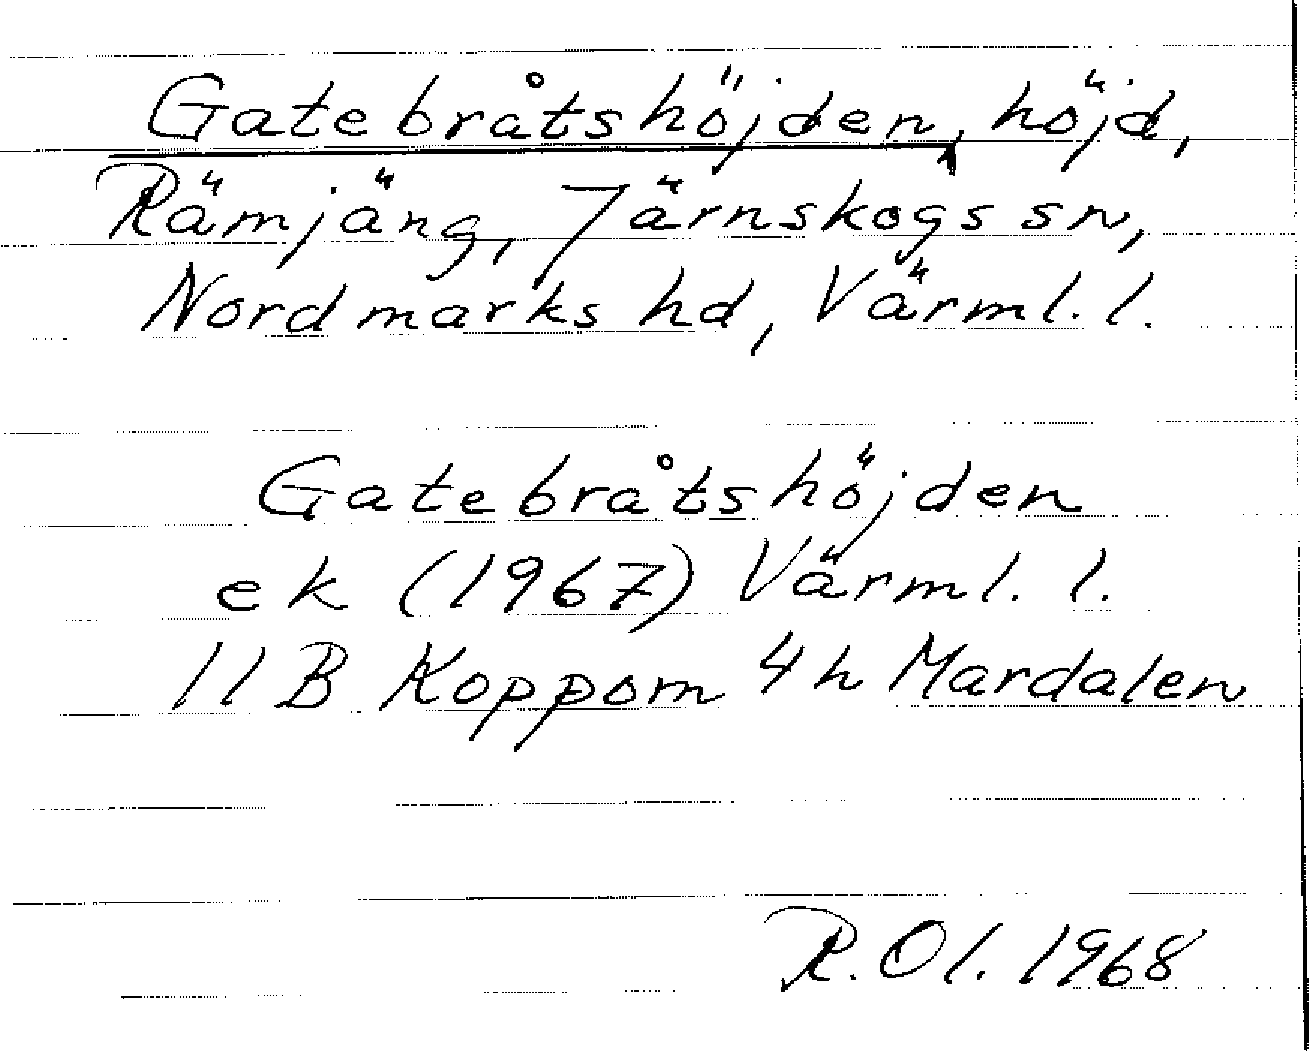 Gatebråtshöjden, höjd,
Rämjäng, Järnskogs sn,
Nordmarks hd, Värml. l.
Gatebråtshöjden
ek (1967) Värml. l.
11 B Koppom 4h Mardalen
R. Ol. 1968